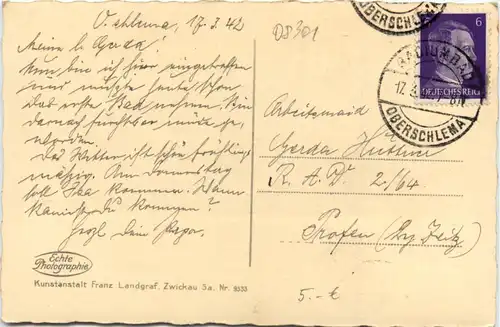 O'schlema, 17.3.42
Meine l. Gerda!
Nun bin ich hier eingetroffen
und mußte heute schon
das erste Bad nehmen. Bin
darnach furchtbar müde ge-
worden.
Das Wetter ist schön frühlings-
mäßig. Am Donnerstag
soll Ilse kommen. Wann
kannst du kommen?
Herzl. Dein Papa.
Echte
Photographie
Kunstanstalt Franz Landgraf, Zwickau Sa. Nr. 9333
DS301
OBERSCHLEMA
6
DEUTSCHES REICH
RADIUMBAD
17.3.
OBERSCHLEMA
Arbeitsmaid
Gerda
R. A. D. 2/64
Profen (Bz Zeitz)
5.-€